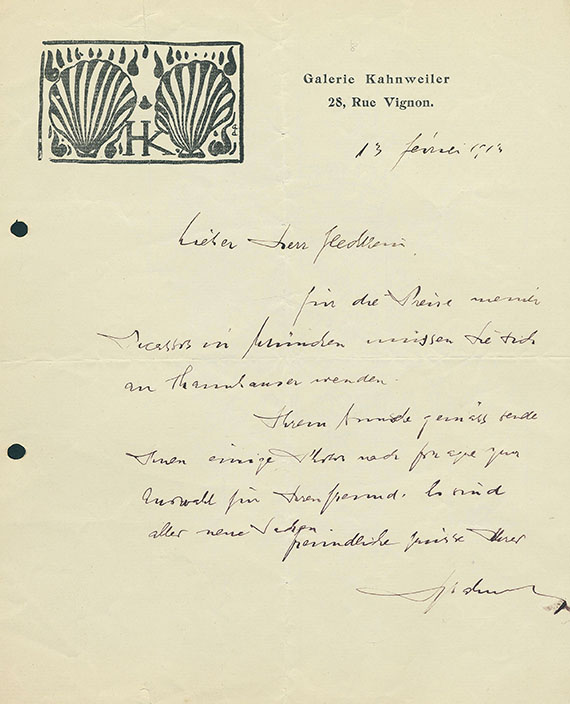 HK
Galerie Kahnweiler
28, Rue Vignon.
13 février 1913
Lieber Herr
für die Preise meiner
Picassos in München müssen Sie sich
an Thannhauser wenden.
Ihrem Wunsche gemäss sende
Ihnen einige Photos nach Prag zur
Auswahl für Ihren Freund. Es sind
alles neue Sachen.
freundliche Grüsse Ihres